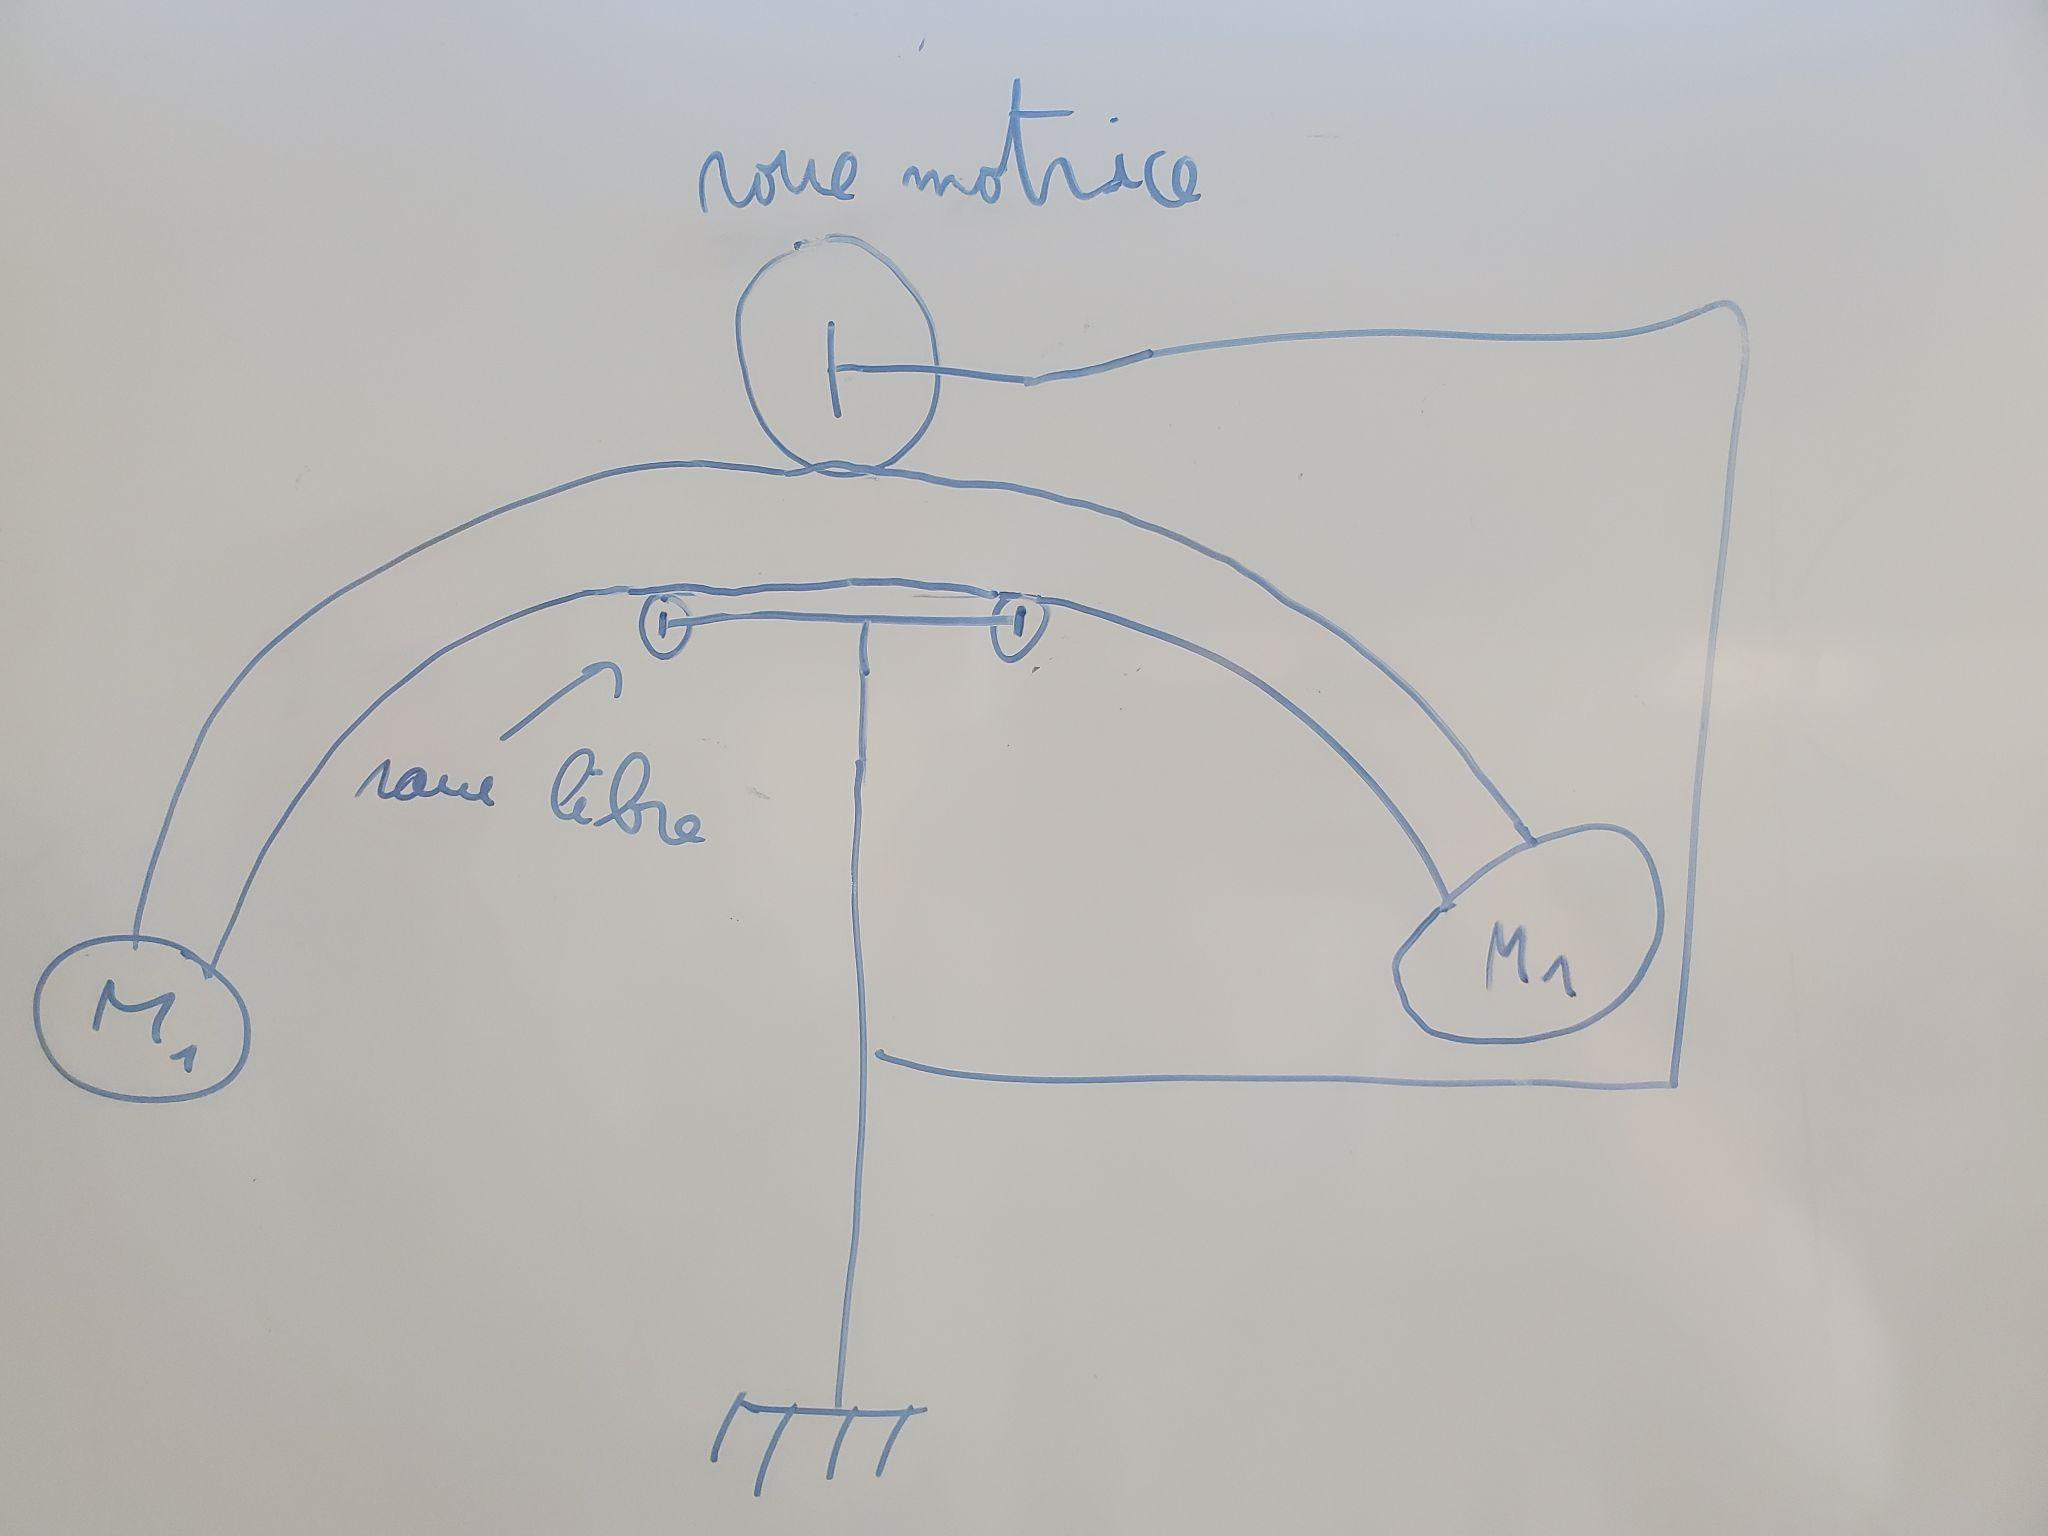 roue motrice
roue libre
M1
M1